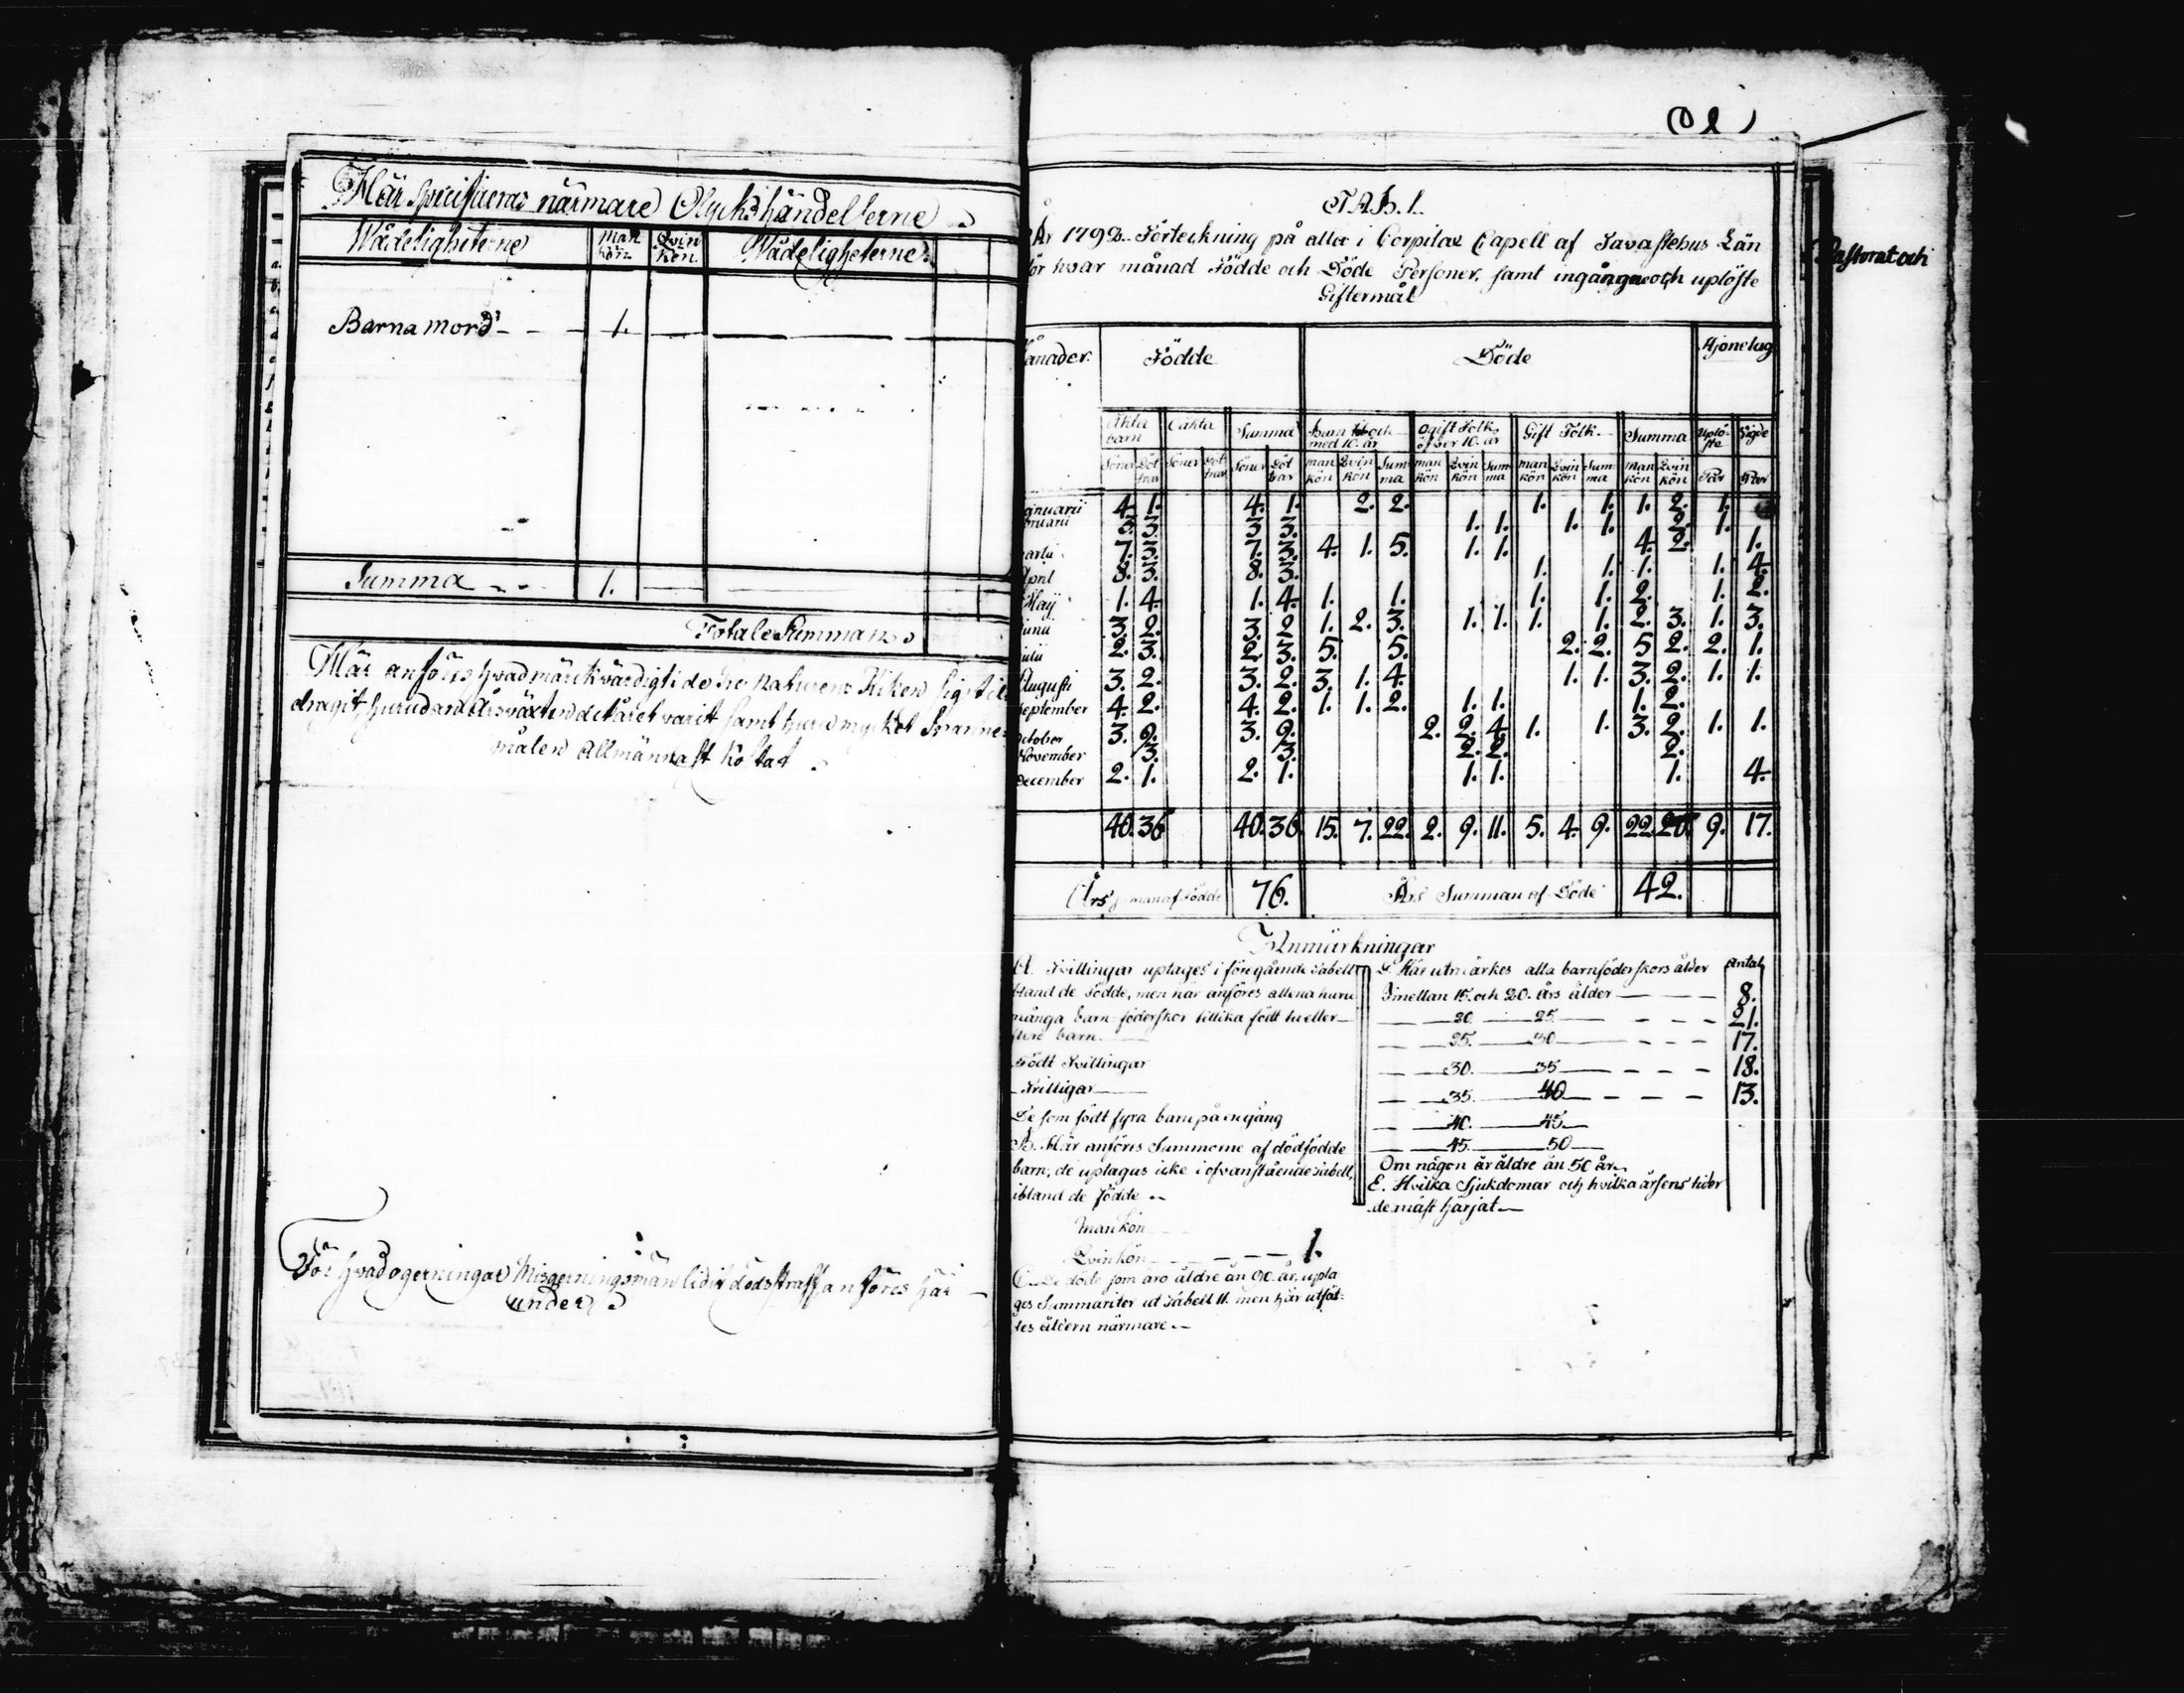 Här specificeras närmare Olyckshändelserne
Wådeligheterne Man kön Qvin kön Wådeligheterne
Barnamord 1.
Summa 1.
Totale Summan
Här anföres hvad märckvärdigt i de tre naturens Riken sig til
dragit, hurudan Årswäxten detta året varit samt huru mycket Spanne
målen allmännast kostat
För hvad ogerningar Misgerningsmän lidit dödsstraff anföres här
under
TAB. 1.
År 1792. Förteckning på alla i Corpilax Capell af Tavastehus Län
för hvar månad Födde och Döde Personer, samt ingångne och uplöste
Giftermål
Pastorat och
Månader. Födde Döde Hjonelag
Äkta barn Oäkta Summa Barn til och med 10. år Ogift Folk öfver 10. år Gift Folk Summa Uplöste Vigde
Söner Döttrar Söner Döttrar Söner Döttrar man kön Qvin kön Summa man kön Qvin kön Summa man kön Qvin kön Summa Man kön Qvin kön Par Par
Januarii 4. 1. 4. 1. 2. 2. 1. 1. 1. 2. 1.
Februarii 3. 3. 3. 3. 1. 1. 1. 1. 2. 1.
Martii 7. 3. 7. 3. 4. 1. 5. 1. 1. 4. 2. 1.
April 8. 3. 8. 3. 1. 1. 1. 1. 4.
Maij 1. 4. 1. 4. 1. 1. 1. 1. 2. 1. 2.
Junii 3. 2. 3. 2. 1. 2. 3. 1. 1. 1. 1. 2. 3. 1. 3.
Julii 2. 3. 2. 3. 5. 5. 2. 2. 5 2. 2. 1.
Augusti 3. 2. 3. 2. 3. 1. 4. 1. 1. 3. 2. 1. 1.
September 4. 2. 4. 2. 1. 1. 2. 1. 1. 1. 2.
October 3. 9. 3. 9. 2. 2. 4. 1. 1. 3. 2. 1. 1.
November 3. 3. 2. 2. 2.
December 2. 1. 2. 1. 1. 1. 1. 4.
40. 36 40. 36. 15. 7. 22. 2. 9. 11. 5. 4. 9. 22. 20. 9. 17.
Års Summan af Födde 76. Års Summan af Döde 42.
Anmärkningar
A. Tvillingar uptages i föregående Tabell
bland de Födde, men här anföres allena huru
många barn föderskor tillika födt tu eller
flere barn.
Födt Tvillingar
Trillingar
De som födt fyra barn på en gång
B. Här anföris Summorne af dödfödde
barn, de uptagas icke i ofvanstående Tabell,
ibland de Födde
Mankön
Qvinkön 1.
C. De döde som äro äldre än 90. år, upta
ges Summariter ut Tabell II. men här utsät
tes åldern närmare
D. Här utmärkes alla barnföderskors ålder Antal
Imellan 15. och 20. års ålder 8.
20. 25 21.
25. 30 17.
30. 35 18.
35. 40 13.
40. 45
45. 50
Om någon är äldre än 50 år
E. Hvilka Sjukdomar och hvilka årsens tider
de mäst härjat